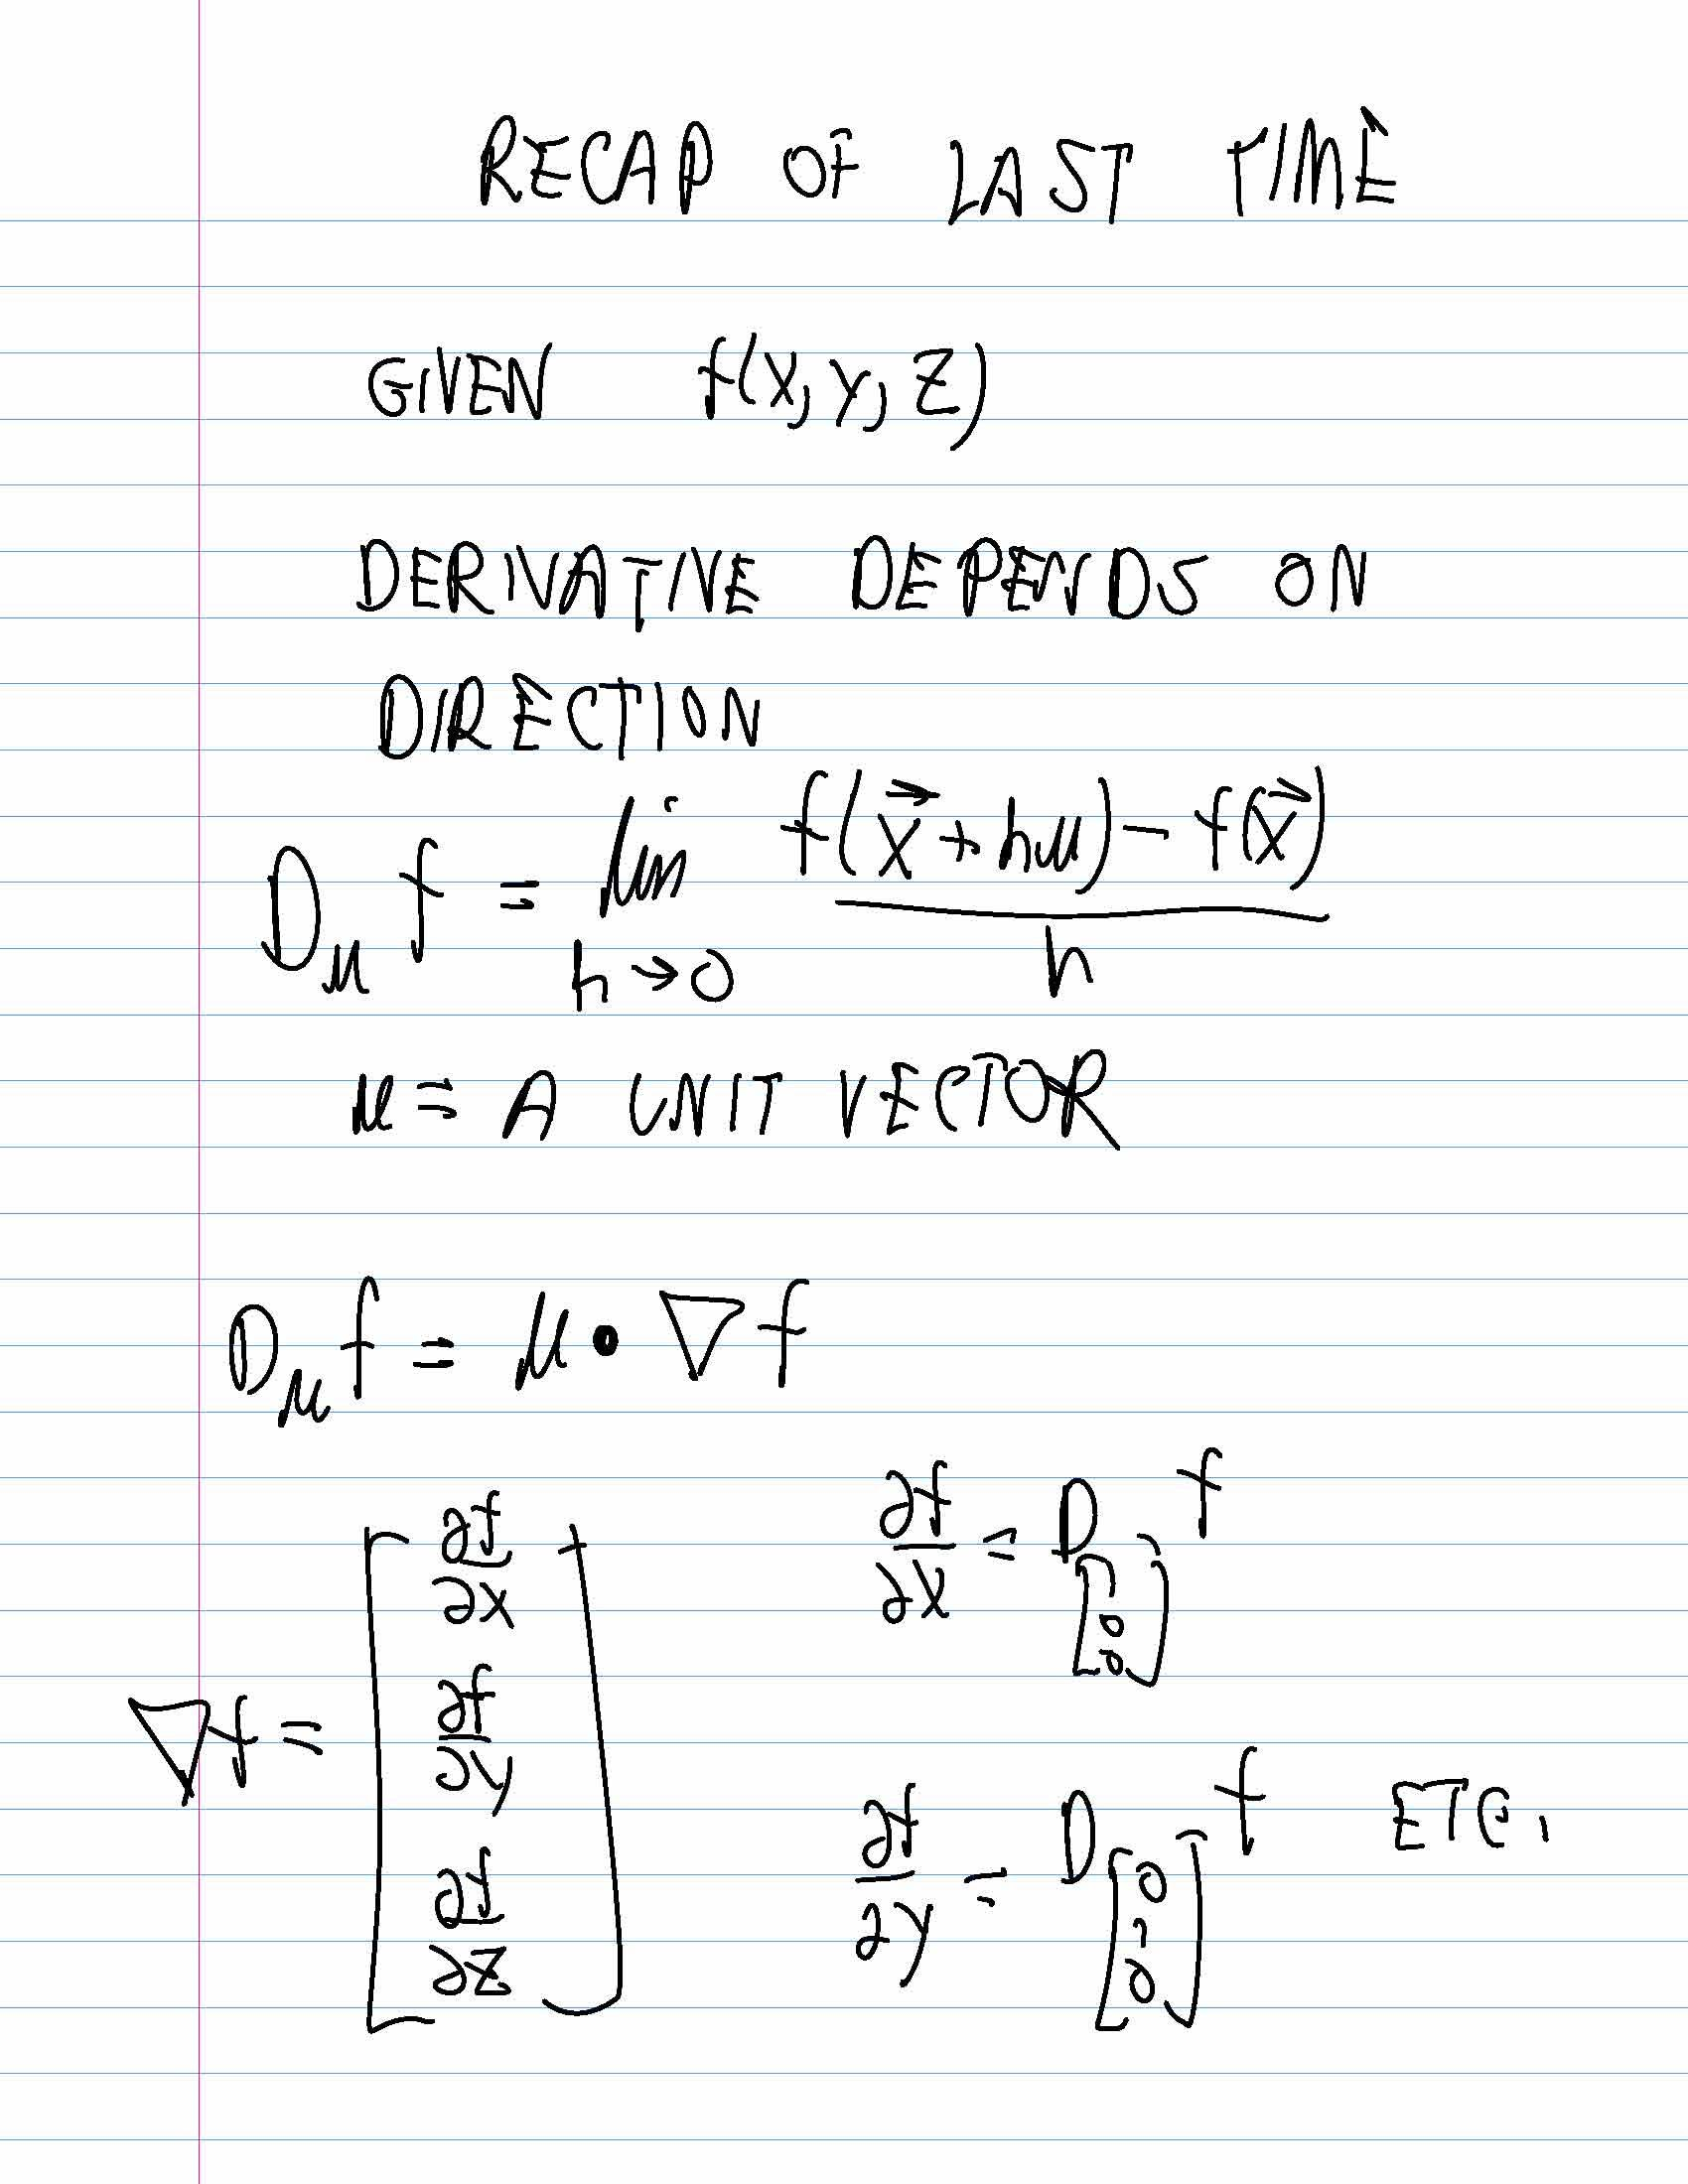 RECAP OF LAST TIME
GIVEN f(x, y, z)
DERIVATIVE DEPENDS ON
DIRECTION
D_u f = lim_{h→0} (f(x⃗ + hu) − f(x⃗)) / h
u = A UNIT VECTOR
D_u f = u • ∇f
∇f = [∂f/∂x, ∂f/∂y, ∂f/∂z]
∂f/∂x = D_[1 0 0] f
∂f/∂y = D_[0 1 0] f ETC.